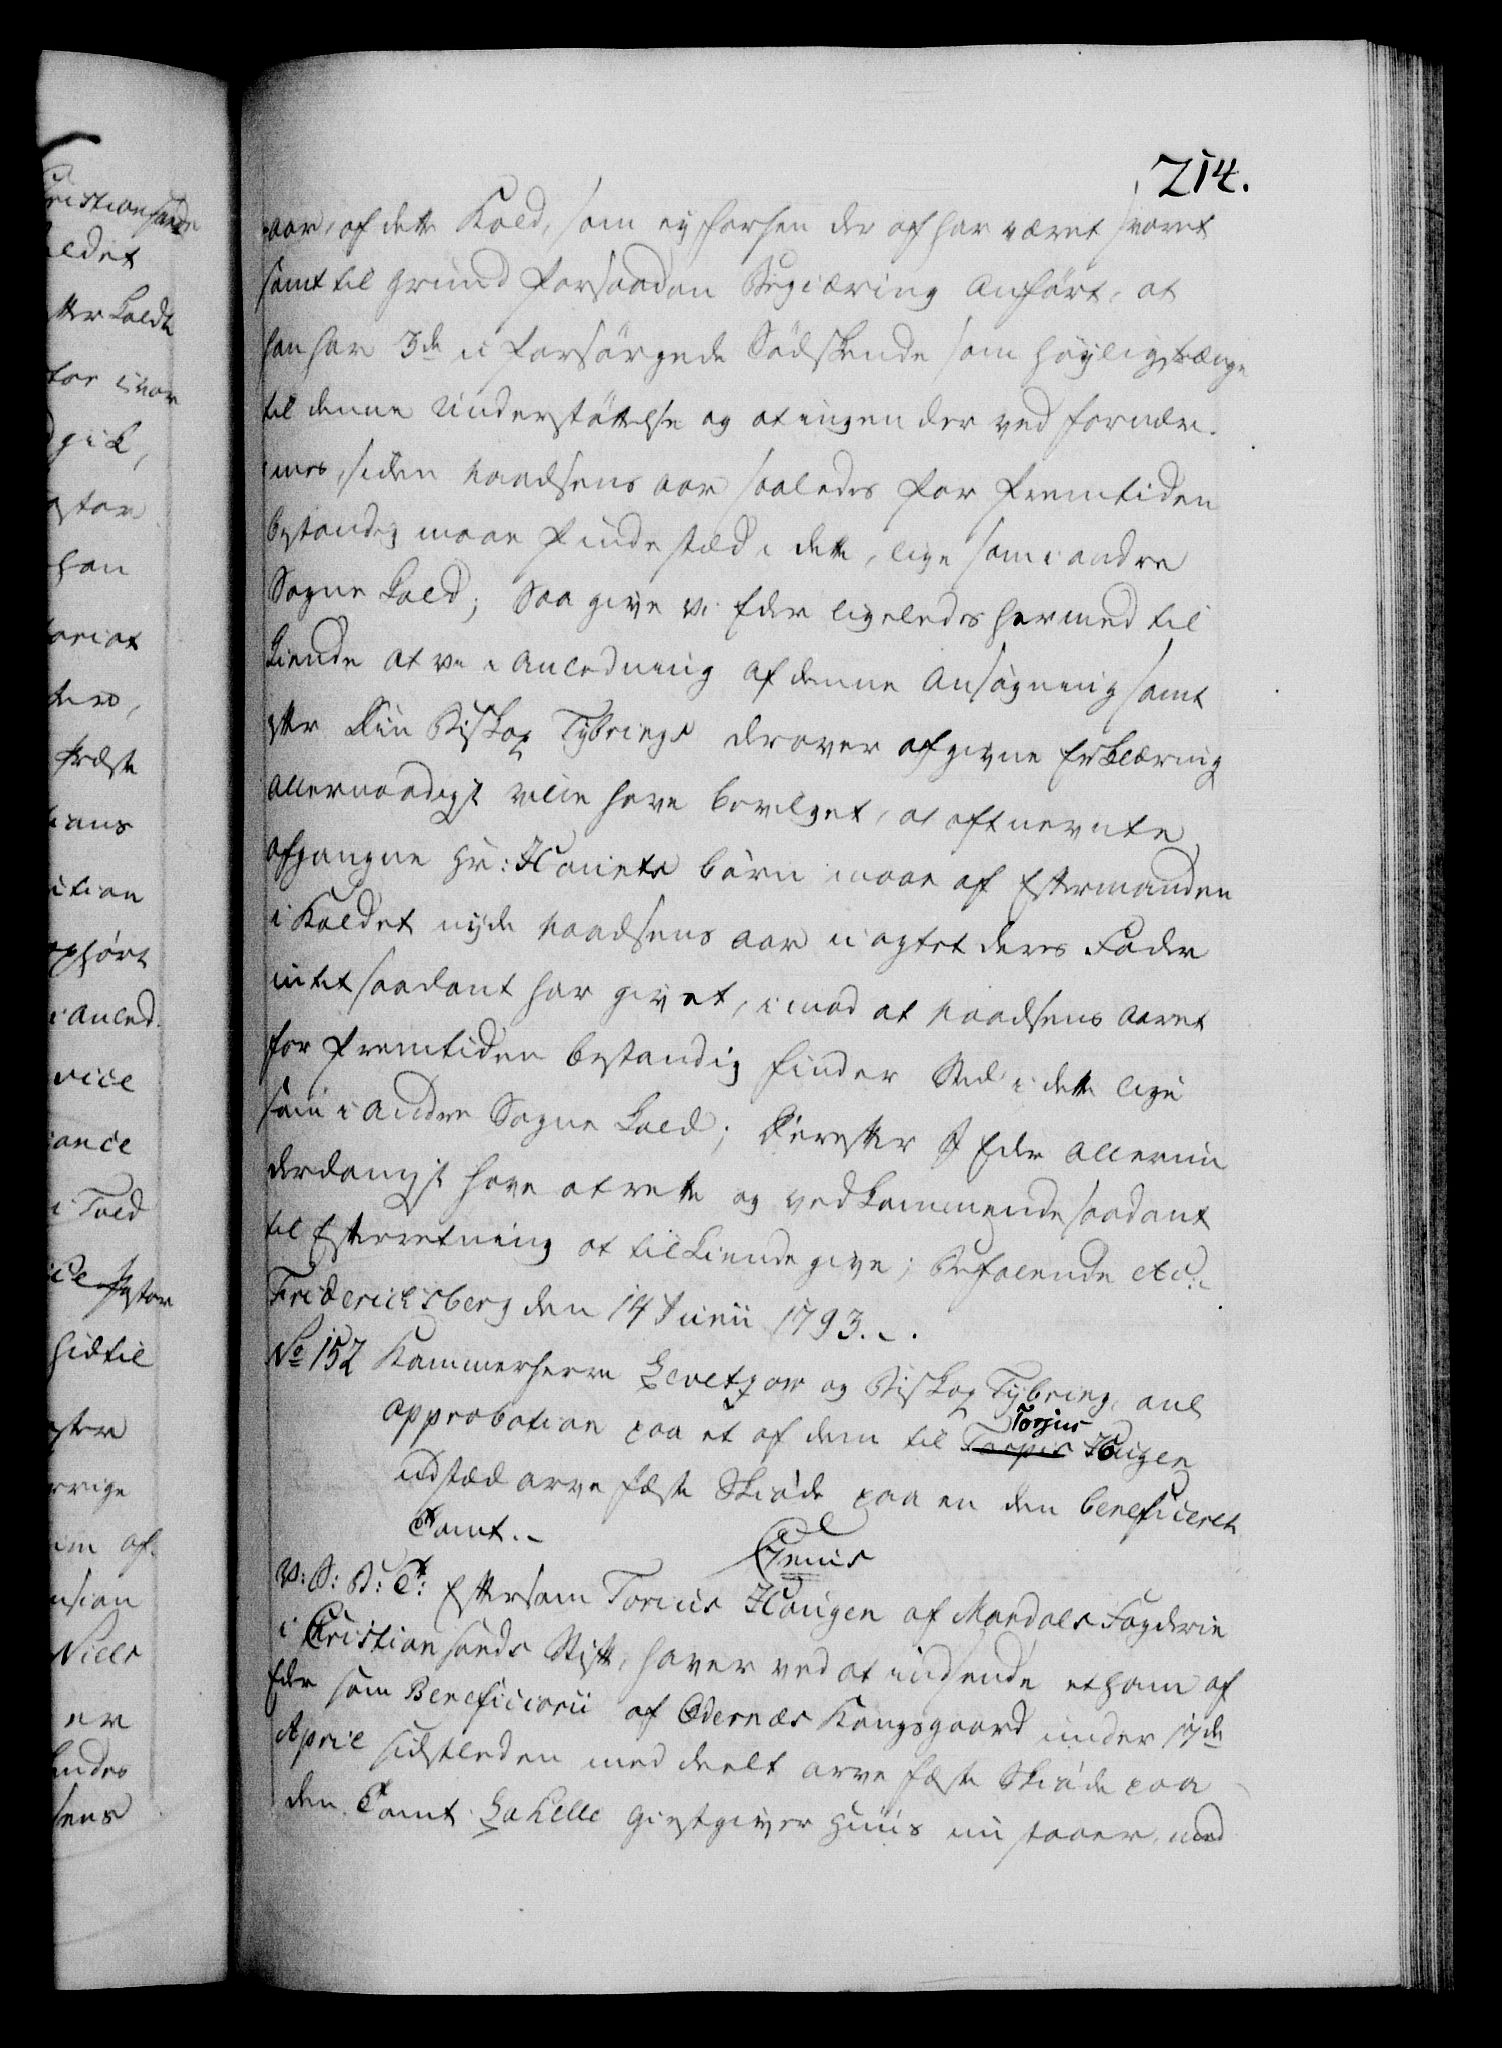 214.
aar, af dette Kald, som ey forhen der af har været svaret
samt til Grund for saadan Begiæring anført, at
han har 3de u forsørgede Sødskende som høyligstrænge
til denne Understøttelse og at ingen der ved fornær-
mes, siden Naadsens aar saaledes for Fremtiden
bestandig maae finde stæd i dette, lige som i andre
Sogne Kald; Saa give vi Eder ligeledes hermed til
kiende at vi i Anledning af denne Ansøgning samt
efter Din Biskop Tybrings derover afgivne Erklæring
allernaadigst ville have bevilget, at oftnevnte
afgangne Hr: Hauets børn maae af Eftermanden
i Kaldet nyde Naadsens aar uagtet deres Fader
intet saadant har givet, imod at Naadsens aaret
for Fremtiden bestandig finder Sted i dette lige
som i Andre Sogne Kald; Derefter I Eder allerun
derdanigst have at rette og vedkommende saadant
til Efterretning at tilkiende give; Befalende etc:
Friderichsberg den 14 Junii 1793.
No 152 Kammerherre Levetzow og Biskop Tybring, anl
Approbation paa et af dem til Torjus Haugen
udstæd arve fæste Skiøde paa en dem beneficeret
Tomt.
Genis
V: G: B: T: Eftersom Torius Haugen af Mandals Fogderie
i Christiansands Stift, haver ved at indsende et ham af
Eder som Beneficiarii af Oddernæs Kongsgaard under 17de
April sidstleden meddeelt arve fæste Skiøde paa
den Tomt Lahelle Giestgiver Huus nu staaer, med
Christiansands
Kaldet
gik,
han
Præste
Anled
Told
hidtil
Niels